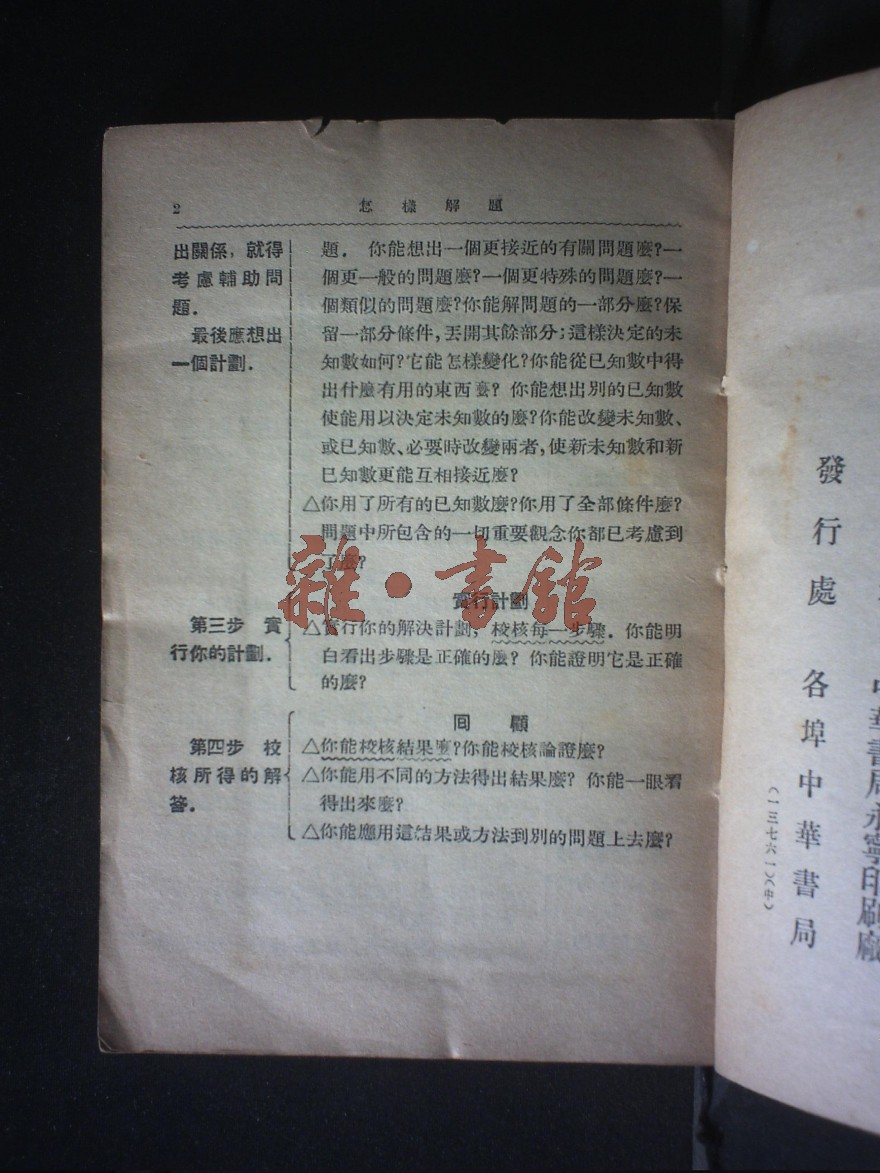 2
怎樣解題
出關係，就得
考慮輔助問
題．
最後應想出
一個計劃．
題．你能想出一個更接近的有關問題麼?一
個更一般的問題麼?一個更特殊的問題麼?一
個類似的問題麼?你能解問題的一部分麼?保
留一部分條件，丟開其餘部分；這樣決定的未
知數如何?它能怎樣變化?你能從已知數中得
出什麼有用的東西麼?你能想出別的已知數
使能用以決定未知數的麼?你能改變未知數、
或已知數、必要時改變兩者，使新未知數和新
已知數更能互相接近麼?
△你用了所有的已知數麼?你用了全部條件麼?
問題中所包含的一切重要觀念你都已考慮到
了麼?
雜·書館
實行計劃
第三步 實
行你的計劃．
△實行你的解決計劃，校核每一步驟．你能明
白看出步驟是正確的麼?你能證明它是正確
的麼?
回顧
第四步 校
核所得的解
答．
△你能校核結果麼?你能校核論證麼?
△你能用不同的方法得出結果麼?你能一眼看
得出來麼?
△你能應用這結果或方法到別的問題上去麼?
中華書局永寧印刷廠
發行處 各埠中華書局
(一三七六一)(中)